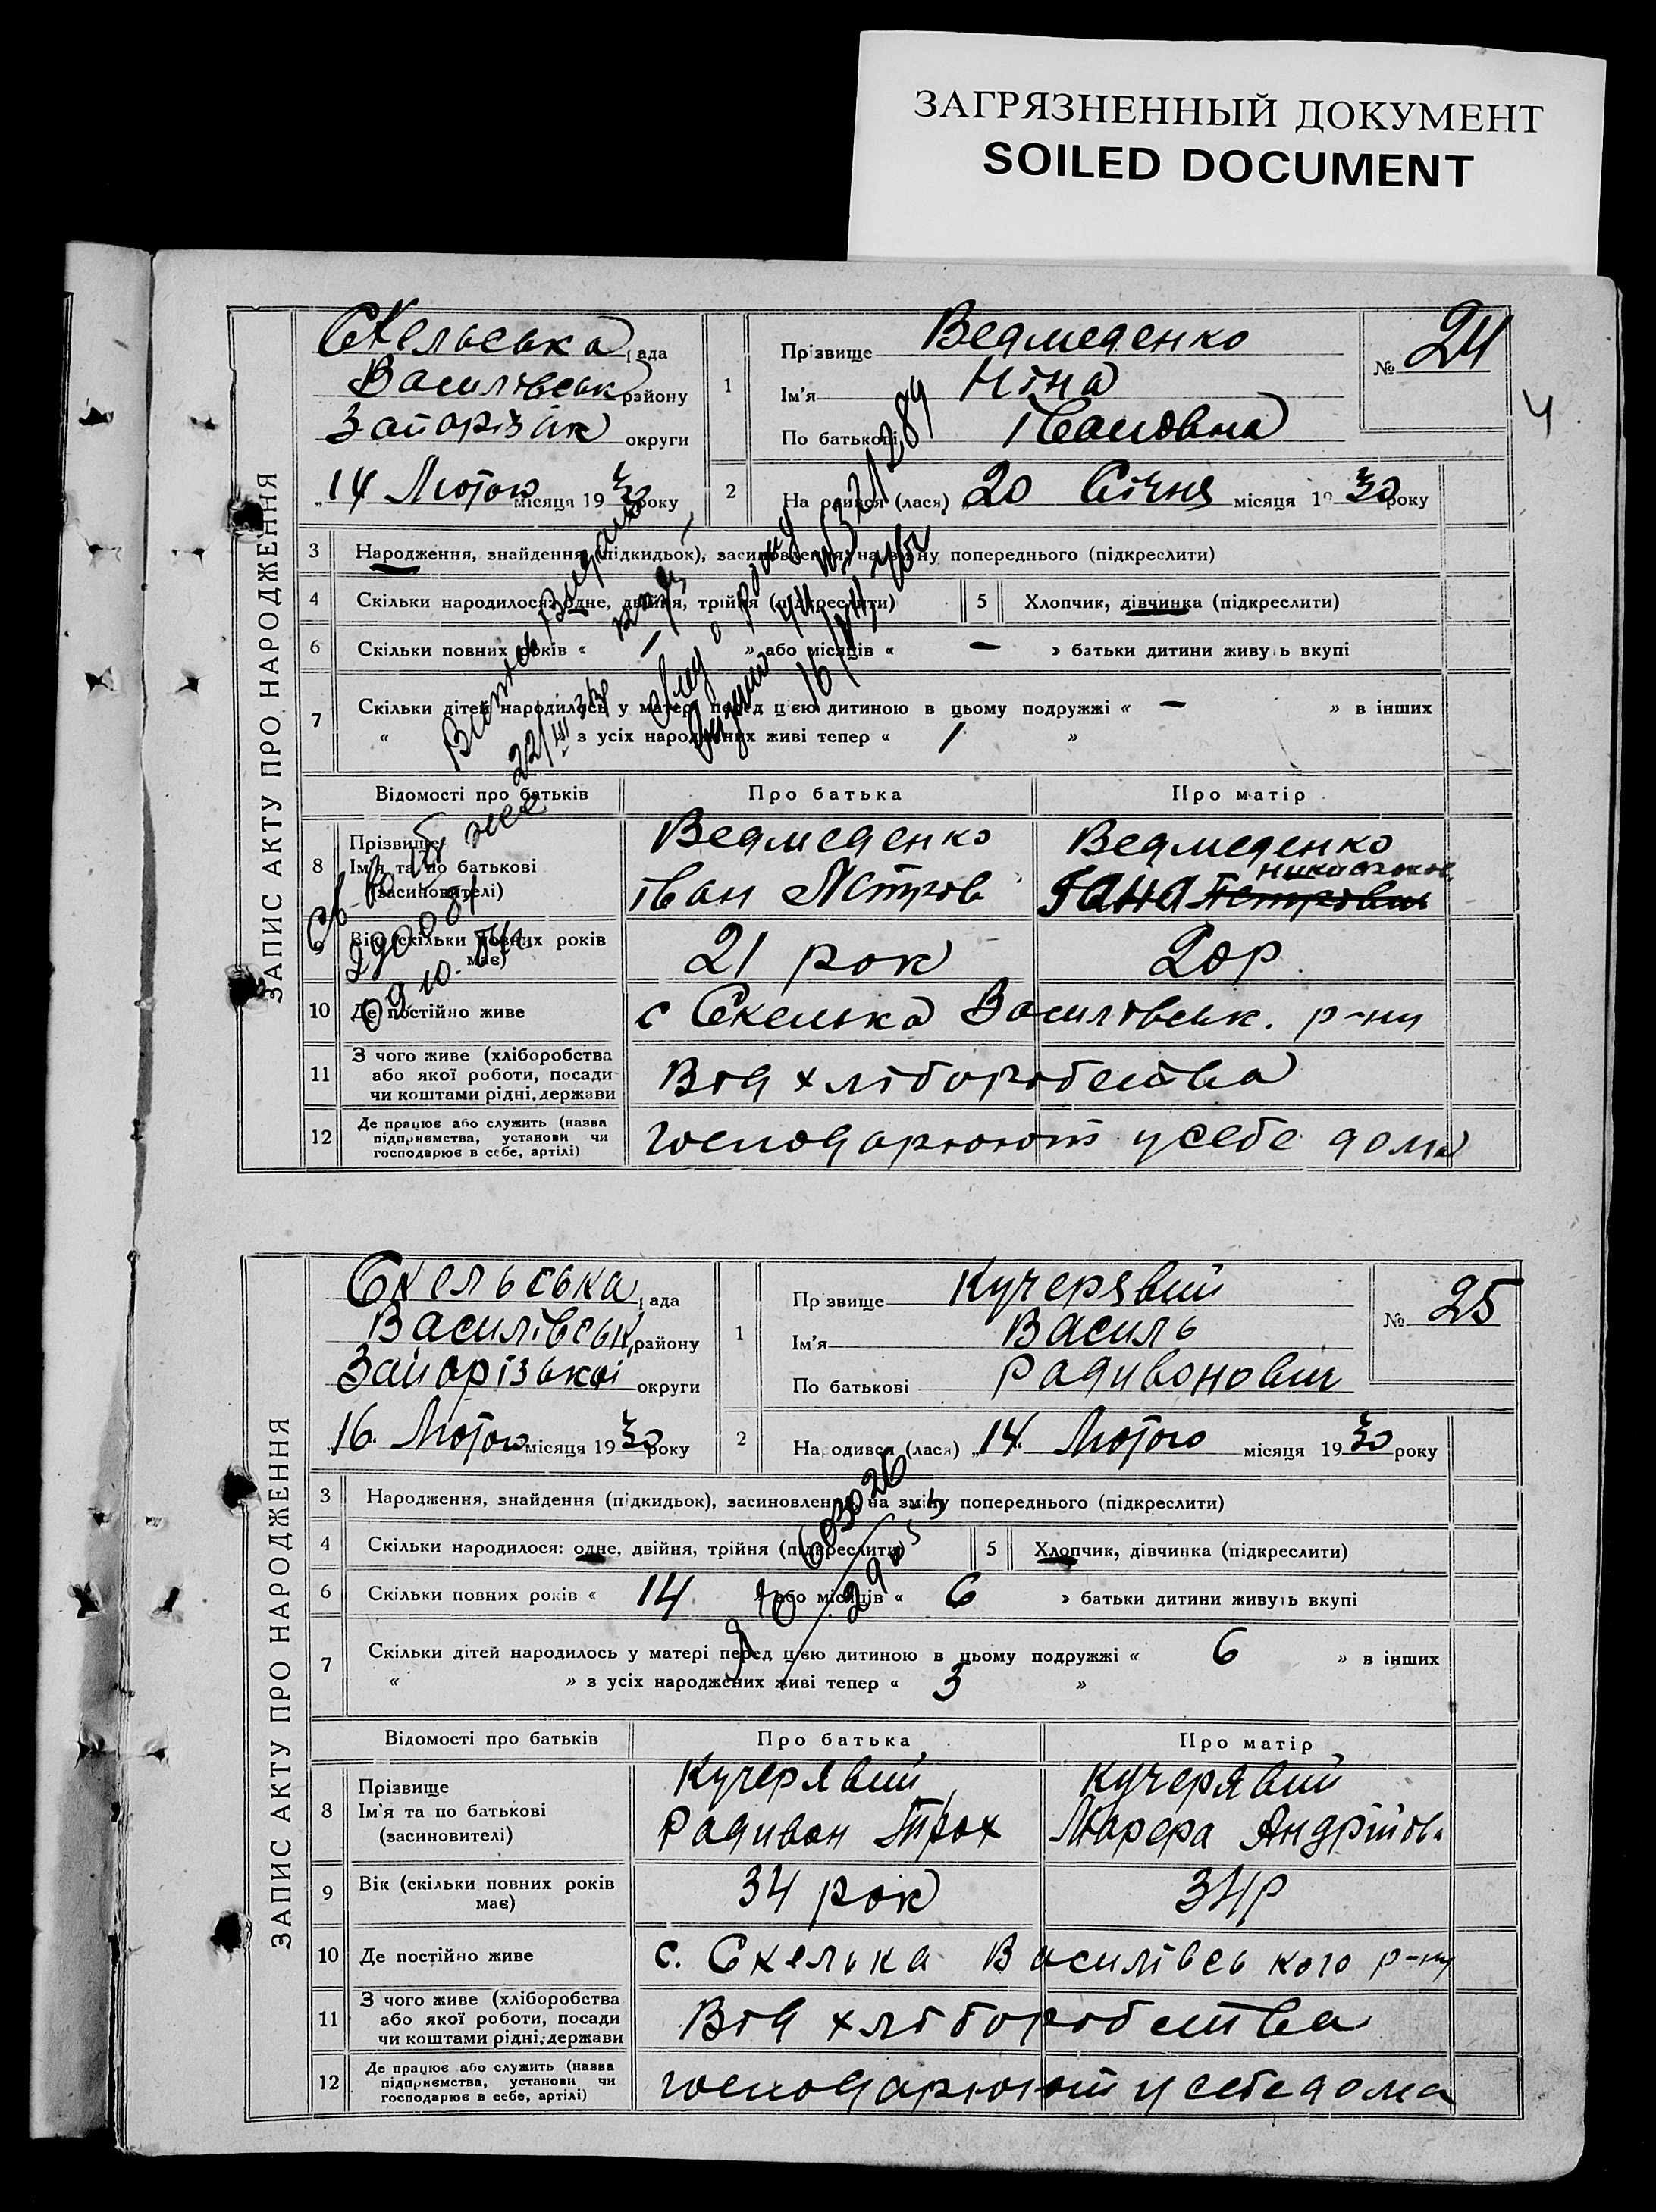 ЗАГРЯЗНЕННЫЙ ДОКУМЕНТ
SOILED DOCUMENT
4
ЗАПИС АКТУ ПРО НАРОДЖЕННЯ
Скельська рада
Василівськ району
Запорізьк округи
„14 Лютого місяця 1930 року
1 Прізвище Ведмеденко
Ім'я Ніна
По батькові Івановна
№ 24
2 Народився (лася) 20 Січня місяця 1930 року
3 Народження, знайдення (підкидьок), засиновлення, на зміну попереднього (підкреслити)
4 Скільки народилося: одне, двійня, трійня (підкреслити) 5 Хлопчик, дівчинка (підкреслити)
6 Скільки повних років « 1 » або місяців « — » батьки дитини живуть вкупі
7 Скільки дітей народилось у матері перед цією дитиною в цьому подружжі « — » в інших
« » з усіх народжених живі тепер « 1 »
Відомості про батьків Про батька Про матір
8 Прізвище Ведмеденко Ведмеденко
Ім'я та по батькові
(засиновителі) Іван Петров Гана
9 Вік (скільки повних років має) 21 рок 20 р.
10 Де постійно живе с Скелька Василівськ. р-ну
11 З чого живе (хліборобства
або якої роботи, посади
чи коштами рідні, держави Від хліборобства
12 Де працює або служить (назва
підприємства, установи чи
господарює в себе, артілі) господарюють у себе дома
22/III
290081
09 10.
ЗАПИС АКТУ ПРО НАРОДЖЕННЯ
Скельська рада
Василівськ району
Запорізької округи
„16. Лютого місяця 1930 року
1 Прізвище Кучерявий
Ім'я Василь
По батькові Радивонович
№ 25
2 Народився (лася) „14. Лютого місяця 1930 року
3 Народження, знайдення (підкидьок), засиновлення, на зміну попереднього (підкреслити)
4 Скільки народилося: одне, двійня, трійня (підкреслити) 5 Хлопчик, дівчинка (підкреслити)
6 Скільки повних років « 14 » або місяців « 6 » батьки дитини живуть вкупі
7 Скільки дітей народилось у матері перед цією дитиною в цьому подружжі « 6 » в інших
« » з усіх народжених живі тепер « 3 »
603026
Відомості про батьків Про батька Про матір
8 Прізвище Кучерявий Кучерявий
Ім'я та по батькові
(засиновителі) Радивон Трох Марфа Андрійов.
9 Вік (скільки повних років має) 34 рок 34р
10 Де постійно живе с. Скелька Василівського р-ну
11 З чого живе (хліборобства
або якої роботи, посади
чи коштами рідні, держави Від хліборобства
12 Де працює або служить (назва
підприємства, установи чи
господарює в себе, артілі) господарюють у себе дома